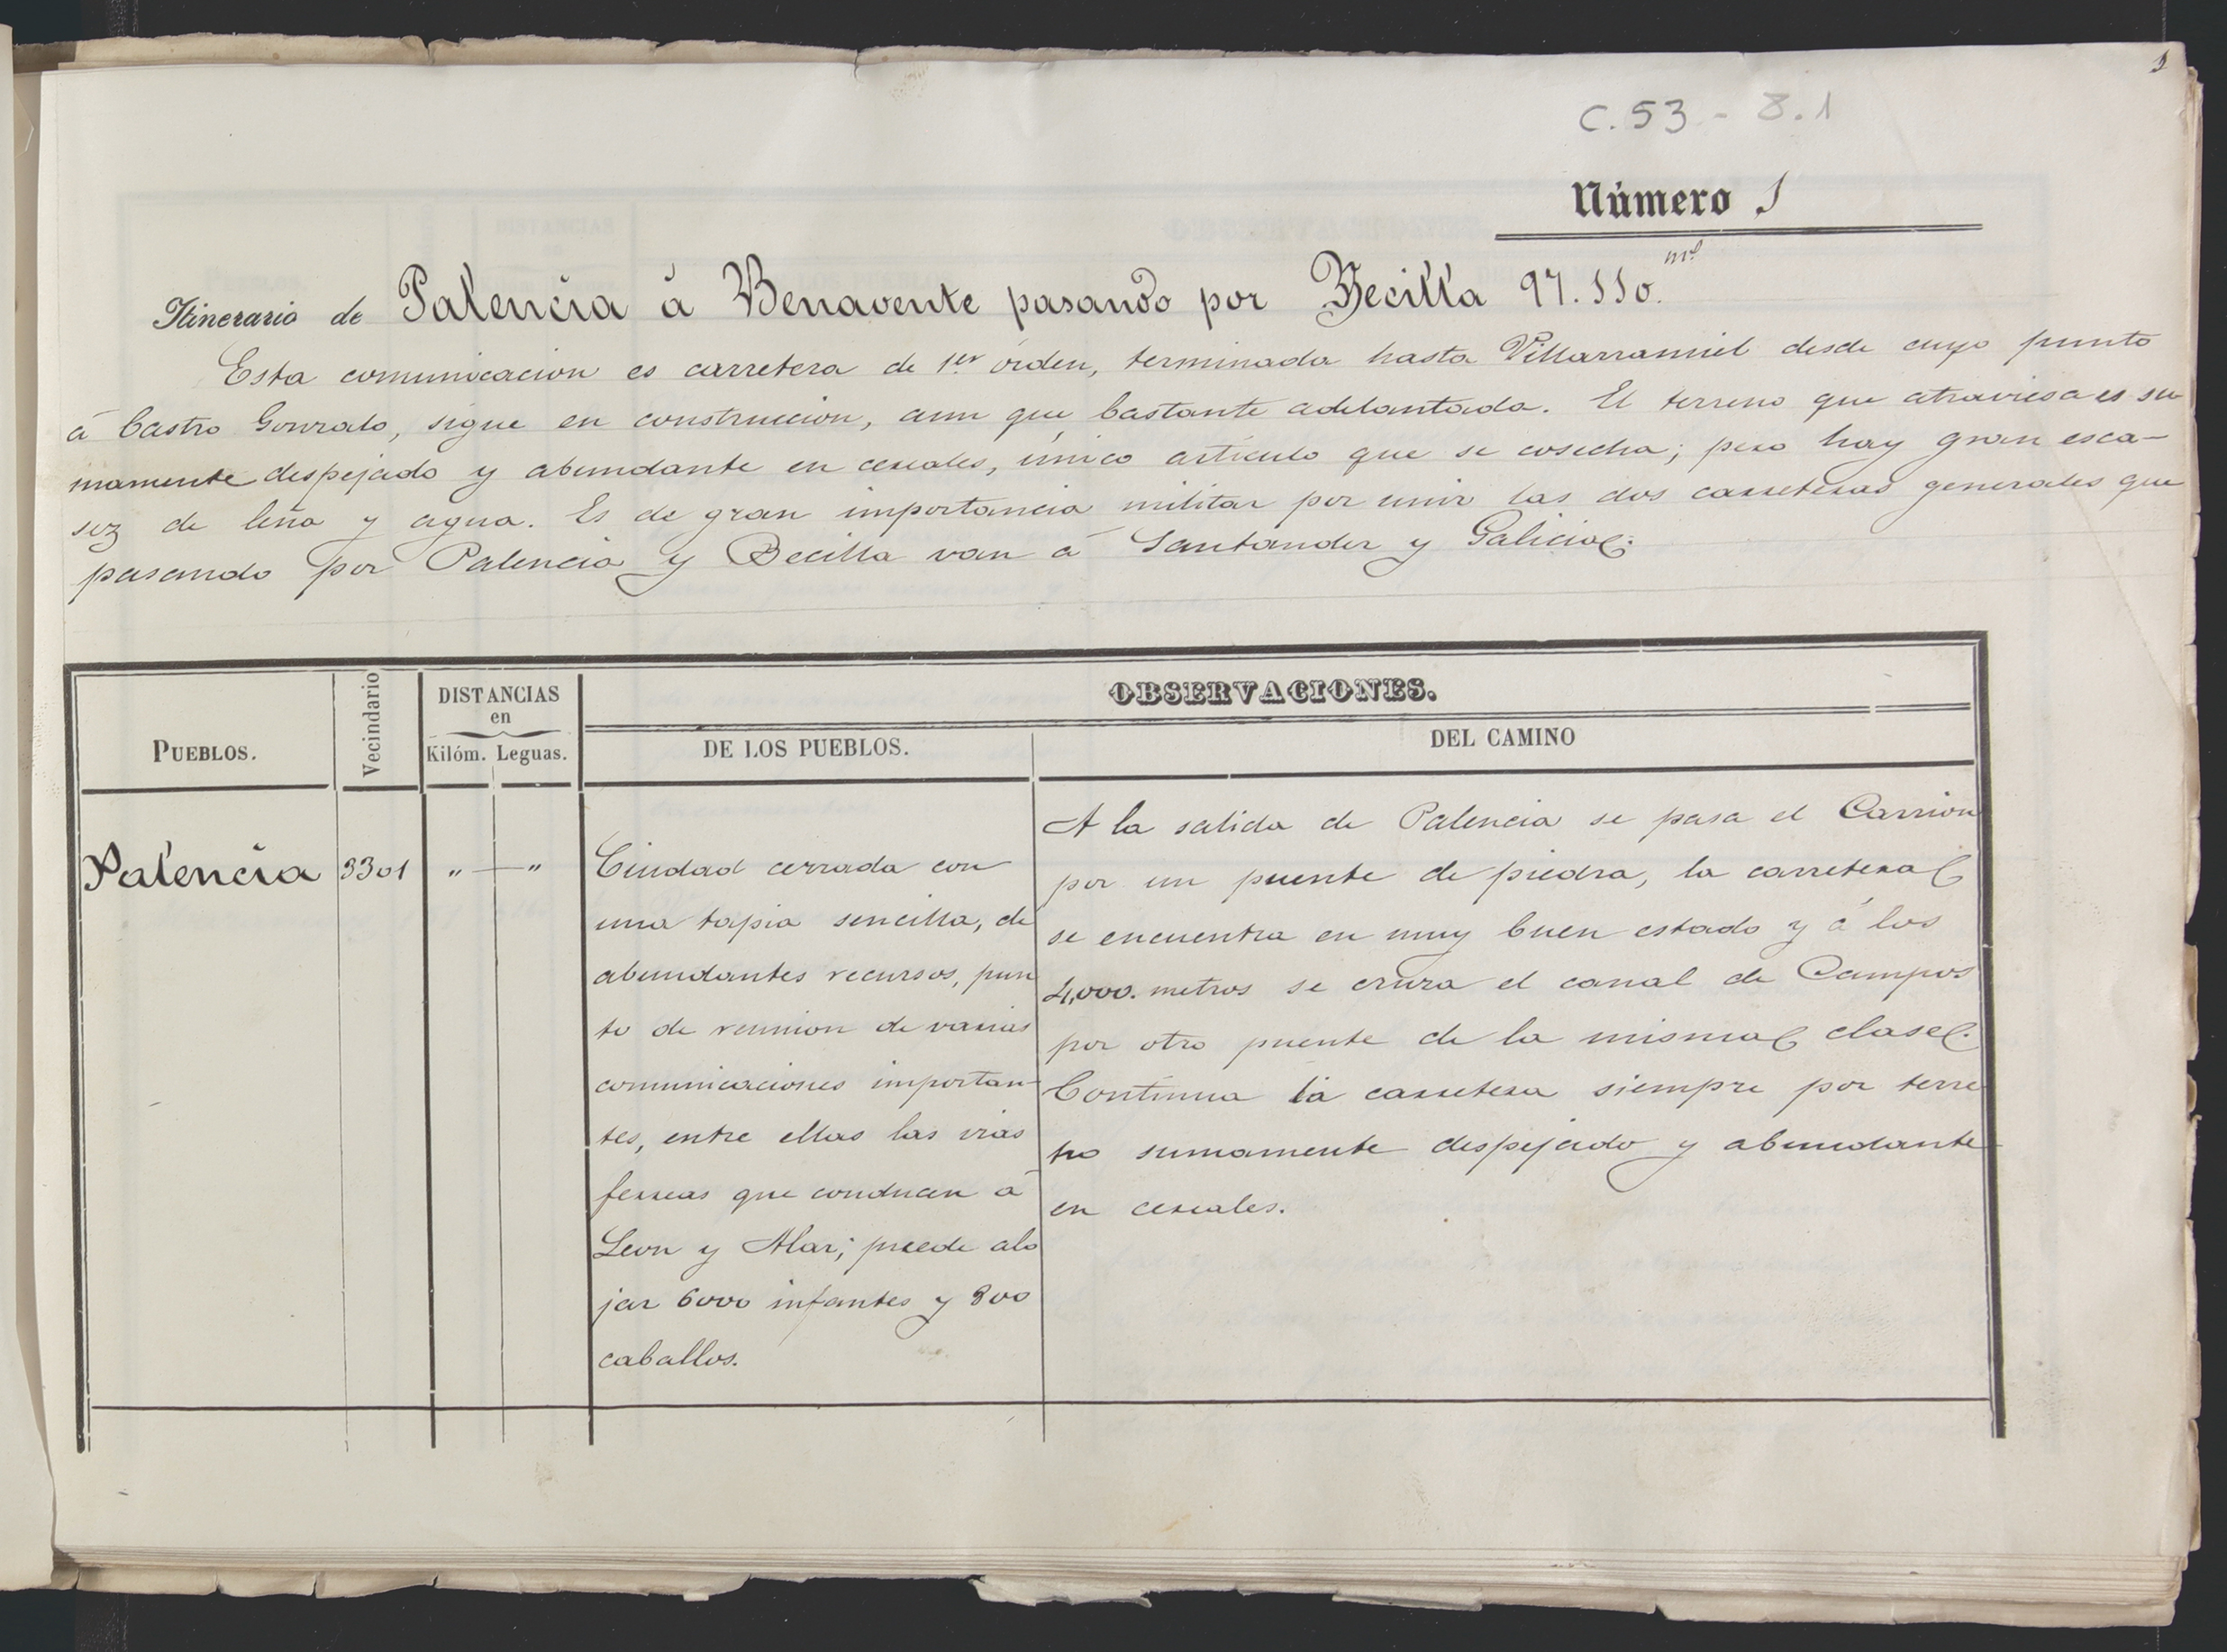 1
C. 53 - 8.1
Número 1
Itinerario de Palencia á Benavente pasando por Becilla 97.110. ms
Esta comunicacion es carretera de 1er órden, terminada hasta Villarramiel desde cuyo punto
á Castro Gonzalo, sigue en construccion, aun que bastante adelantada. El terreno que atraviesa es su
mamente despejado y abundante en cereales, único artículo que se cosecha; pero hay gran esca-
sez de leña y agua. Es de gran importancia militar por unir las dos carreteras generales que
pasando por Palencia y Becilla van á Santander y Galicia.
PUEBLOS.
Vecindario
DISTANCIAS
en
Kilóm. Leguas.
OBSERVACIONES.
DE LOS PUEBLOS.
DEL CAMINO
Palencia 3301 " "
Ciudad cerrada con
una tapia sencilla, de
abundantes recursos, pun
to de reunion de varias
comunicaciones importan-
tes, entre ellas las vias
ferreas que conducen á
Leon y Alar; puede alo
jar 6000 infantes y 800
caballos.
A la salida de Palencia se pasa el Carrion
por un puente de piedra, la carretera
se encuentra en muy buen estado y á los
4,000. metros se cruza el canal de Campos
por otro puente de la misma clase.
Continua la carretera siempre por terre
no sumamente despejado y abundante
en cereales.